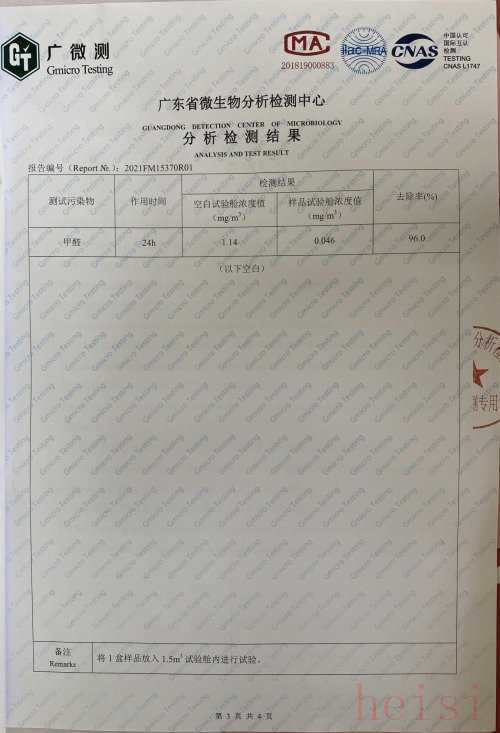 广微测
Gmicro Testing
MA
201819000883
ilac-MRA
CNAS
中国认可
国际互认
检测
TESTING
CNAS L1747
广东省微生物分析检测中心
GUANGDONG DETECTION CENTER OF MICROBIOLOGY
分析检测结果
ANALYSIS AND TEST RESULT
报告编号（Report №.）：2021FM15370R01
测试污染物 作用时间 检测结果 去除率(%)
空白试验舱浓度值（mg/m³） 样品试验舱浓度值（mg/m³）
甲醛 24h 1.14 0.046 96.0
（以下空白）
分析检
测专用
备注
Remarks
将 1 盒样品放入 1.5m³ 试验舱内进行试验。
第 3 页 共 4 页
heisi